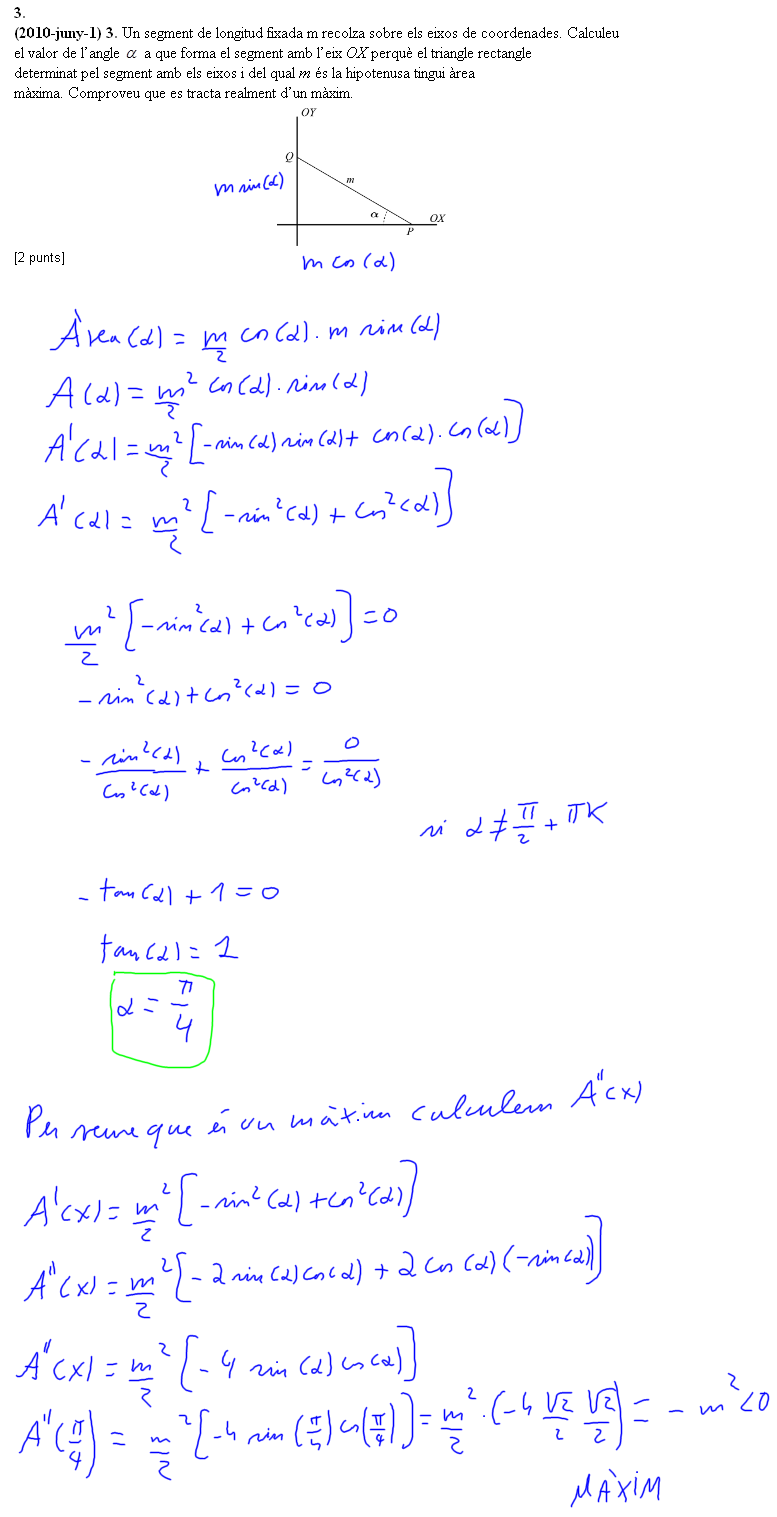 3.
(2010-juny-1) 3. Un segment de longitud fixada m recolza sobre els eixos de coordenades. Calculeu
el valor de l'angle α a que forma el segment amb l'eix OX perquè el triangle rectangle
determinat pel segment amb els eixos i del qual m és la hipotenusa tingui àrea
màxima. Comproveu que es tracta realment d'un màxim.
OY
Q
m
m sin(α)
α
OX
P
[2 punts]
m cos(α)
Àrea(α) = m/2 cos(α) · m sin(α)
A(α) = m²/2 cos(α) · sin(α)
A'(α) = m²/2 [-sin(α) sin(α) + cos(α) · cos(α)]
A'(α) = m²/2 [-sin²(α) + cos²(α)]
m²/2 [-sin²(α) + cos²(α)] = 0
-sin²(α) + cos²(α) = 0
-sin²(α)/cos²(α) + cos²(α)/cos²(α) = 0/cos²(α)
si α ≠ π/2 + πK
-tan(α) + 1 = 0
tan(α) = 1
α = π/4
Per veure que és un màxim calculem A''(x)
A'(x) = m²/2 [-sin²(α) + cos²(α)]
A''(x) = m²/2 [-2 sin(α) cos(α) + 2 cos(α) (-sin(α))]
A''(x) = m²/2 [-4 sin(α) cos(α)]
A''(π/4) = m²/2 [-4 sin(π/4) cos(π/4)] = m²/2 · (-4 √2/2 √2/2) = -m² < 0
MÀXIM